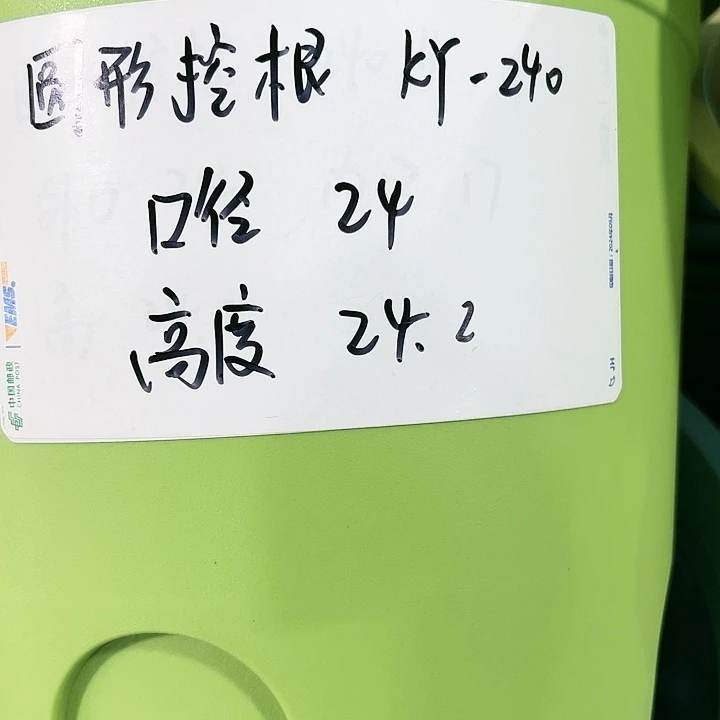 圆形控根 KY-240
口径 24
高度 24.2
EMS
中国邮政
CHINA POST